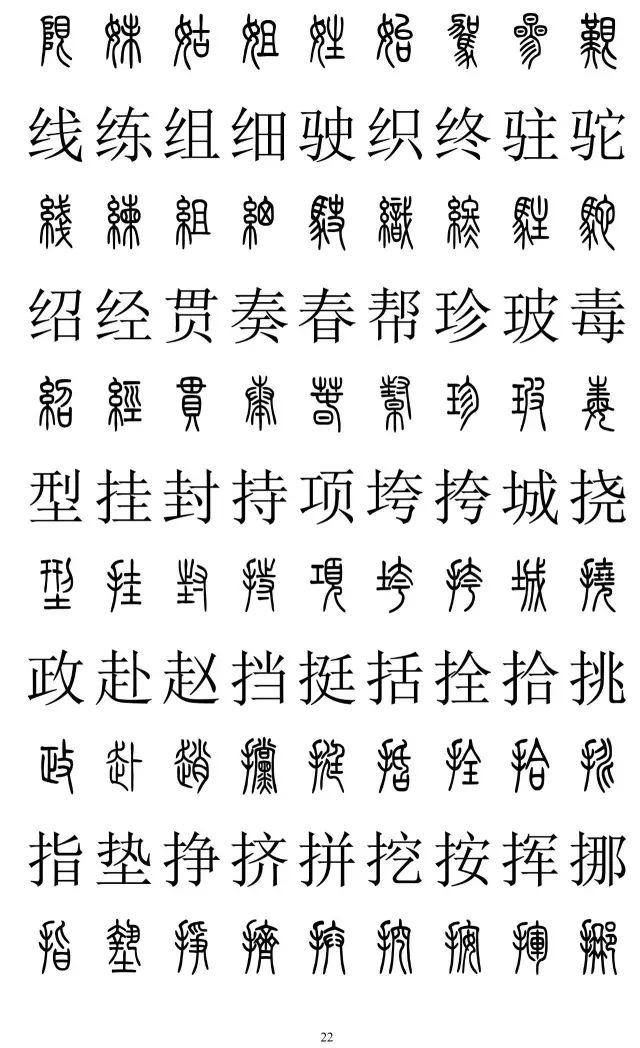 限妹姑姐姓始駕參艱
线练组细驶织终驻驼
綫練組細駛織終駐駝
绍经贯奏春帮珍玻毒
紹經貫奏春幫珍玻毒
型挂封持项垮挎城挠
型挂封持項垮挎城撓
政赴赵挡挺括拴拾挑
政赴趙擋挺括拴拾挑
指垫挣挤拼挖按挥挪
指墊掙擠拼挖按揮挪
22